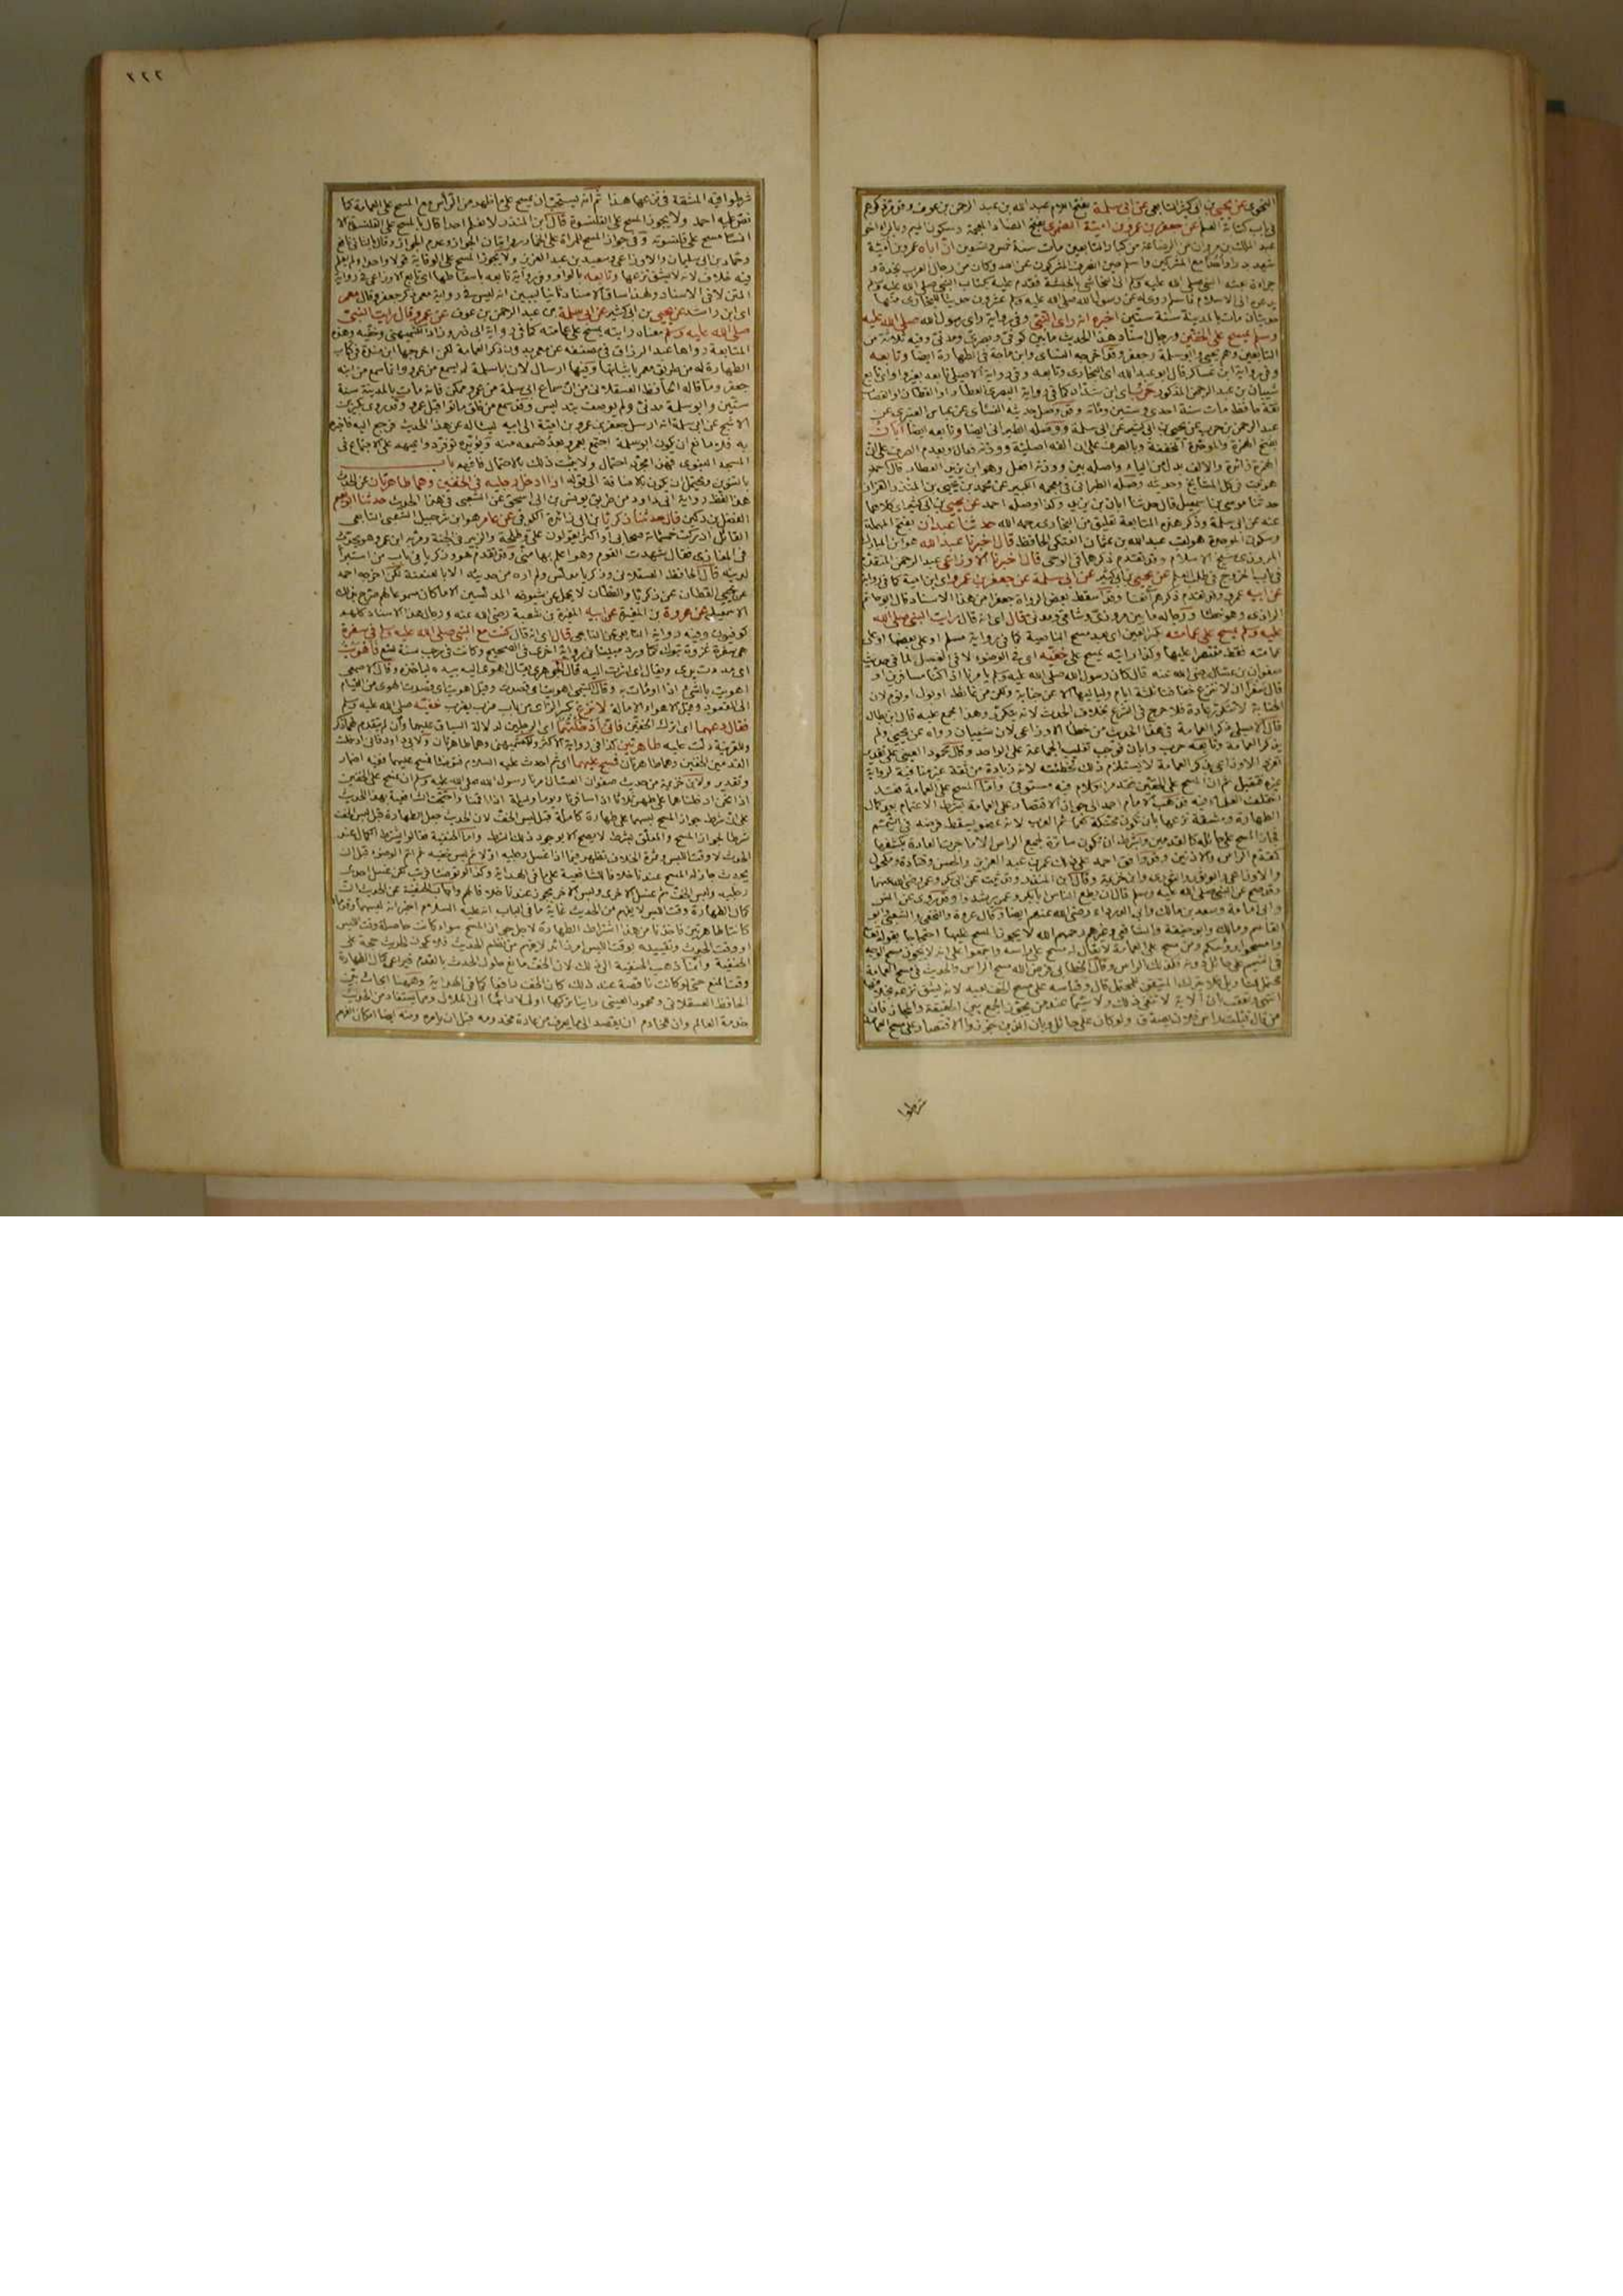 النحوي عن يحيى بن ابي كثير التابعي عن ابي سلمة بفتح اللام عبد الله بن عبد الرحمن بن عوف وقد مر ذكرهم
في باب كتابة العلم عن جعفر بن عمرو بن امية الضمري بفتح الضاد المعجمة وسكون الميم وبالراء اخو
عبد الملك بن مروان من الرضاعة من كبار التابعين مات سنة خمس وتسعين ان اباه عمرو بن امية
شهد بدرا واحدا مع المشركين واسلم حين انصرف المشركون عن احد وكان من رجال العرب نجدة و
جراءة بعثه النبي صلى الله عليه وسلم الى النجاشي بالحبشة فقدم عليه بكتاب النبي صلى الله عليه وسلم
يدعوه الى الاسلام فاسلم روي له عن رسول الله صلى الله عليه وسلم عشرون حديثا للبخاري منها
حديثان مات بالمدينة سنة ستين اخبره انه راى النبي وفي رواية راى رسول الله صلى الله عليه
وسلم يمسح على الخفين ورجال اسناد هذا الحديث ما بين كوفي وبصري ومدني وفيه ثلاثة من
التابعين وهم يحيى وابو سلمة وجعفر وقد اخرجه النسائي وابن ماجة في الطهارة ايضا وتابعه
وفي رواية ابن عساكر قال ابو عبد الله اي البخاري وتابعه وفي رواية الاصيلي تابعه بغير واو اي تابع
شيبان بن عبد الرحمن المذكور حرب اي ابن شداد كما في رواية البصري العطار او القطان او القصاب
ثقة حافظ مات سنة احدى وستين ومائة وقد وصل حديثه النسائي عن عباس العنبري عن
عبد الرحمن بن حرب عن يحيى بن ابي كثير عن ابي سلمة ووصله الطبراني ايضا وتابعه ايضا ابان
بفتح الهمزة والموحدة المخففة وبالصرف على ان الفه اصلية ووزنه فعال وبعدم الصرف على ان
الهمزة زائدة والالف بدل من الياء واصله بين ووزنه افعل وهو ابن يزيد العطار قال احمد
هو ثبت في كل المشايخ وحديثه وصله الطبراني في معجمه الكبير عن محمد بن يحيى بن المنذر القزاز
حدثنا موسى بن اسمعيل قال حدثنا ابان بن يزيد وكذا وصله احمد عن يحيى بن ابي كثير اي كلاهما
عنه عن ابي سلمة وذكر هذه المتابعة تعليق من البخاري رحمه الله حدثنا عبدان بفتح المهملة
وسكون الموحدة هو لقب عبد الله بن عثمان العتكي الحافظ قال اخبرنا عبد الله هو ابن المبارك
المروزي شيخ الاسلام وقد تقدم ذكرهما في الوحي قال اخبرنا الاوزاعي عبد الرحمن المتقدم
في باب الخروج في طلب العلم عن يحيى بن ابي كثير عن ابي سلمة عن جعفر بن عمرو اي ابن امية كما في رواية
عن ابيه عمرو وقد تقدم ذكرهم آنفا وقد اسقط بعض الرواة جعفرا من هذا الاسناد قال ابو حاتم
الرازي وهو خطا ورجاله ما بين مروزي وشامي ومدني قال اي انه قال رايت النبي صلى الله
عليه وسلم يمسح على عمامته
عمامته فقط مقتصرا عليها وكذا رايته يمسح على خفيه اي في الوضوء لا في الغسل لما في حديث
صفوان بن عسال رضي الله عنه قال كان رسول الله صلى الله عليه وسلم يامرنا اذا كنا مسافرين او
قال سفرا ان لا ننزع خفافنا ثلاثة ايام ولياليها الا عن جنابة ولكن من غائط او بول او نوم لان
الجنابة لا تتكرر عادة فلا حرج في النزع بخلاف الحدث لانه يتكرر وهذا مجمع عليه قال ابن بطال
قال الاصيلي ذكر العمامة في هذا الحديث من خطا الاوزاعي لان شيبان رواه عن يحيى ولم
يذكر العمامة وتابعه حرب وابان فوجب تغليب الجماعة على الواحد وقال محمود العيني على تقدير
تفرد الاوزاعي بذكر العمامة لا يستلزم ذلك تخطئته لانه زيادة من ثقة غير منافية لرواية
غيره فتقبل ثم ان المسح على الخفين تقدم الكلام فيه مستوفى واما المسح على العمامة فقد
اختلف العلماء فيه فذهب الامام احمد الى جواز الاقتصار على العمامة بشرط الاعتمام بعد كمال
الطهارة ومشقة نزعها بان تكون محنكة كعمائم العرب لانه عضو يسقط فرضه في التيمم
فجاز المسح على حائله كالقدمين واشترط ان تكون ساترة لجميع الراس الا ما جرت العادة بكشفه
كمقدم الراس والاذنين وقد وافق احمد على ذلك عمر بن عبد العزيز والحسن وقتادة ومكحول
والاوزاعي وابو ثور وابن خزيمة وقال ابن المنذر وقد ثبت عن ابي بكر وعمر رضي الله عنهما
وقد صح عن النبي صلى الله عليه وسلم قال ان يطع الناس ابا بكر وعمر يرشدوا وقد روي عن انس
وابي امامة وسعد بن مالك وابي الدرداء رضي الله عنهم ايضا وقال عروة والنخعي والشعبي وابو
القاسم ومالك وابو حنيفة والشافعي وغيرهم رحمهم الله لا يجوز المسح عليها احتجاجا بقوله تعالى
وامسحوا برؤسكم ومن مسح على العمامة لا يقال له مسح على راسه واجمعوا على انه لا يجوز مسح الوجه
في التيمم على حائل دونه فكذلك الراس وقال الخطابي فرض الله مسح الراس والحديث في مسح العمامة
محتمل للتاويل فلا يترك المتيقن للمحتمل قال وقياسه على مسح الخف بعيد لانه يشق نزعه بخلافها
انتهى وتعقب ان الآية لا تنفي ذلك ولا سيما عند من يجوز الجمع بين الحقيقة والمجاز فان
من قال قبلت راس فلان يصدق ولو كان على حائل وبان الذين جوزوا الاقتصار على مسح العمامة
شرطوا
٢٢٢
شرطوا فيه المشقة في نزعها هذا ثم انه يستحب ان يمسح على ما ظهر من الراس مع المسح على العمامة كما
نص عليه احمد ولا يجوز المسح على القلنسوة قال ابن المنذر لا نعلم احدا قال بالمسح على القلنسوة الا
انسا مسح على قلنسوته وفي جواز المسح للمراة على الخمار روايتان الجواز وعدم الجواز وقال بالثاني نافع
وحماد بن ابي سليمان والاوزاعي وسعيد بن عبد العزيز ولا يجوز المسح على الوقاية قولا واحدا ولم نعلم
فيه خلافا لانه لا يشق نزعها وتابعه بالواو وفي رواية تابعه باسقاطها اي تابع الاوزاعي في رواية
المتن لا في الاسناد ولهذا ساق الاسناد ثانيا ليبين انه ليس في رواية معمر ذكر جعفر وقال معمر
اي ابن راشد عن يحيى بن ابي كثير عن ابي سلمة بن عبد الرحمن بن عوف عن عمرو قال رايت النبي
صلى الله عليه وسلم معناه رايته يمسح على عمامته كما في رواية ابي ذر وزاد الكشميهني وخفيه وهذه
المتابعة رواها عبد الرزاق في مصنفه عن معمر بدون ذكر العمامة لكن اخرجها ابن مندة في كتاب
الطهارة له من طريق معمر باثباتها وفيها ارسال لان ابا سلمة لم يسمع من عمرو وانما سمع من ابنه
جعفر وما قاله الحافظ العسقلاني من ان سماع ابي سلمة من عمرو ممكن فانه مات بالمدينة سنة
ستين وابو سلمة مدني ولم يوصف بتدليس وقد سمع من خلق ماتوا قبل عمرو وقد روى بكير بن
الاشج عن ابي سلمة انه ارسل جعفر بن عمرو بن امية الى ابيه ليساله عن هذا الحديث فرجع اليه فاخبره
به فلا مانع ان يكون ابو سلمة اجتمع بعمرو بعد فسمعه منه ويؤيده توفر دواعيهم على الاجتماع في
المسجد النبوي فهذا مجرد احتمال ولا يثبت ذلك بالاحتمال فافهم باب
بالتنوين ويحتمل ان يكون بالاضافة الى قوله اذا ادخل رجليه في الخفين وهما طاهرتان عن الحدث
هذا لفظ رواية ابي داود من طريق يونس بن ابي اسحق عن الشعبي في هذا الحديث حدثنا ابو نعيم
الفضل بن دكين قال حدثنا زكريا بن ابي زائدة الكوفي عن عامر هو ابن شرحبيل الشعبي التابعي
القائل ادركت خمسمائة صحابي او اكثر يقولون علي وطلحة والزبير في الجنة ومر به ابن عمر وهو يحدث
في المغازي فقال شهدت القوم وهو اعلم بها مني وقد تقدم هو وزكريا في باب من استبرا
لدينه قال الحافظ العسقلاني وزكريا مدلس ولم اره من حديثه الا بالعنعنة لكن اخرجه احمد
عن يحيى القطان عن زكريا والقطان لا يحمل عن شيوخه المدلسين الا ما كان مسموعا لهم صرح بذلك
الاسمعيلي عن عروة بن المغيرة عن ابيه المغيرة بن شعبة رضي الله عنه ورجال هذا الاسناد كلهم
كوفيون وفيه رواية التابعي عن التابعي قال اي انه قال كنت مع النبي صلى الله عليه وسلم في سفرة
هي سفرة غزوة تبوك كما ورد مبينا في رواية اخرى في الصحيح وكانت في رجب سنة تسع فاهويت
اي مددت يدي ويقال اي اشرت اليه قال الجوهري يقال اهوى اليه بيده لياخذه وقال الاصمعي
اهويت بالشيء اذا اومات به وقال التيمي اهويت اي قصدت وقيل اهويت اي قصدت الهوي من القيام
الى القعود وقيل الاهواء الامالة لانزع بكسر الزاي من باب ضرب يضرب خفيه صلى الله عليه وسلم
فقال دعهما اي اترك الخفين فاني ادخلتهما اي الرجلين لدلالة السياق عليهما وان لم يتقدم لهما ذكر
وللقرينة دلت عليه طاهرتين كذا في رواية الاكثر وللكشميهني وهما طاهرتان ولابي داود فاني ادخلت
القدمين الخفين وهما طاهرتان فمسح عليهما اي ثم احدث عليه السلام فتوضا فمسح عليهما ففيه اضمار
وتقدير ولابن خزيمة من حديث صفوان بن عسال امرنا رسول الله صلى الله عليه وسلم ان نمسح على الخفين
اذا نحن ادخلناهما على طهر ثلاثا اذا سافرنا ويوما وليلة اذا اقمنا واحتجت الشافعية بهذا الحديث
على ان شرط جواز المسح لبسهما على طهارة كاملة قبل لبس الخف لان الحديث جعل الطهارة قبل لبس الخف
شرطا لجواز المسح والمعلق بشرط لا يصح الا بوجود ذلك الشرط واما الحنفية فقالوا يشترط اكمالها عند
الحدث لا وقت اللبس وثمرة الخلاف تظهر فيما اذا غسل رجليه اولا ثم لبس خفيه ثم اتم الوضوء قبل ان
يحدث جاز له المسح عندنا خلافا للشافعية على ما في الهداية وكذا لو توضا فرتب لكن غسل احدى
رجليه ولبس الخف ثم غسل الاخرى ولبس الاخر يجوز عندنا خلافا لهم واجاب الحنفية عن الحديث ان
كمال الطهارة وقت اللبس لا يفهم من الحديث غاية ما في الباب انه عليه السلام اخبر انه لبسهما وقدماه
كانتا طاهرتين فاخذنا من هذا اشتراط الطهارة لاجل جواز المسح سواء كانت حاصلة وقت اللبس
او وقت الحدث وتقييده بوقت اللبس امر زائد لا يفهم من نظم الحديث فلا يكون الحديث حجة على
الحنفية وانما ذهب الحنفية الى ذلك لان الخف مانع حلول الحدث بالقدم فيراعى كمال الطهارة
وقت المنع حتى لو كانت ناقصة عند ذلك كان الخف رافعا كما في الهداية وههنا ابحاث بين
الحافظ العسقلاني ومحمود العيني راينا تركها اولى لادائها الى الملال ومما يستفاد من الحديث
خدمة العالم وان للخادم ان يقصد الى ما يعرف من عادة مخدومه قبل ان يامره ومنه ايضا امكان الفهم